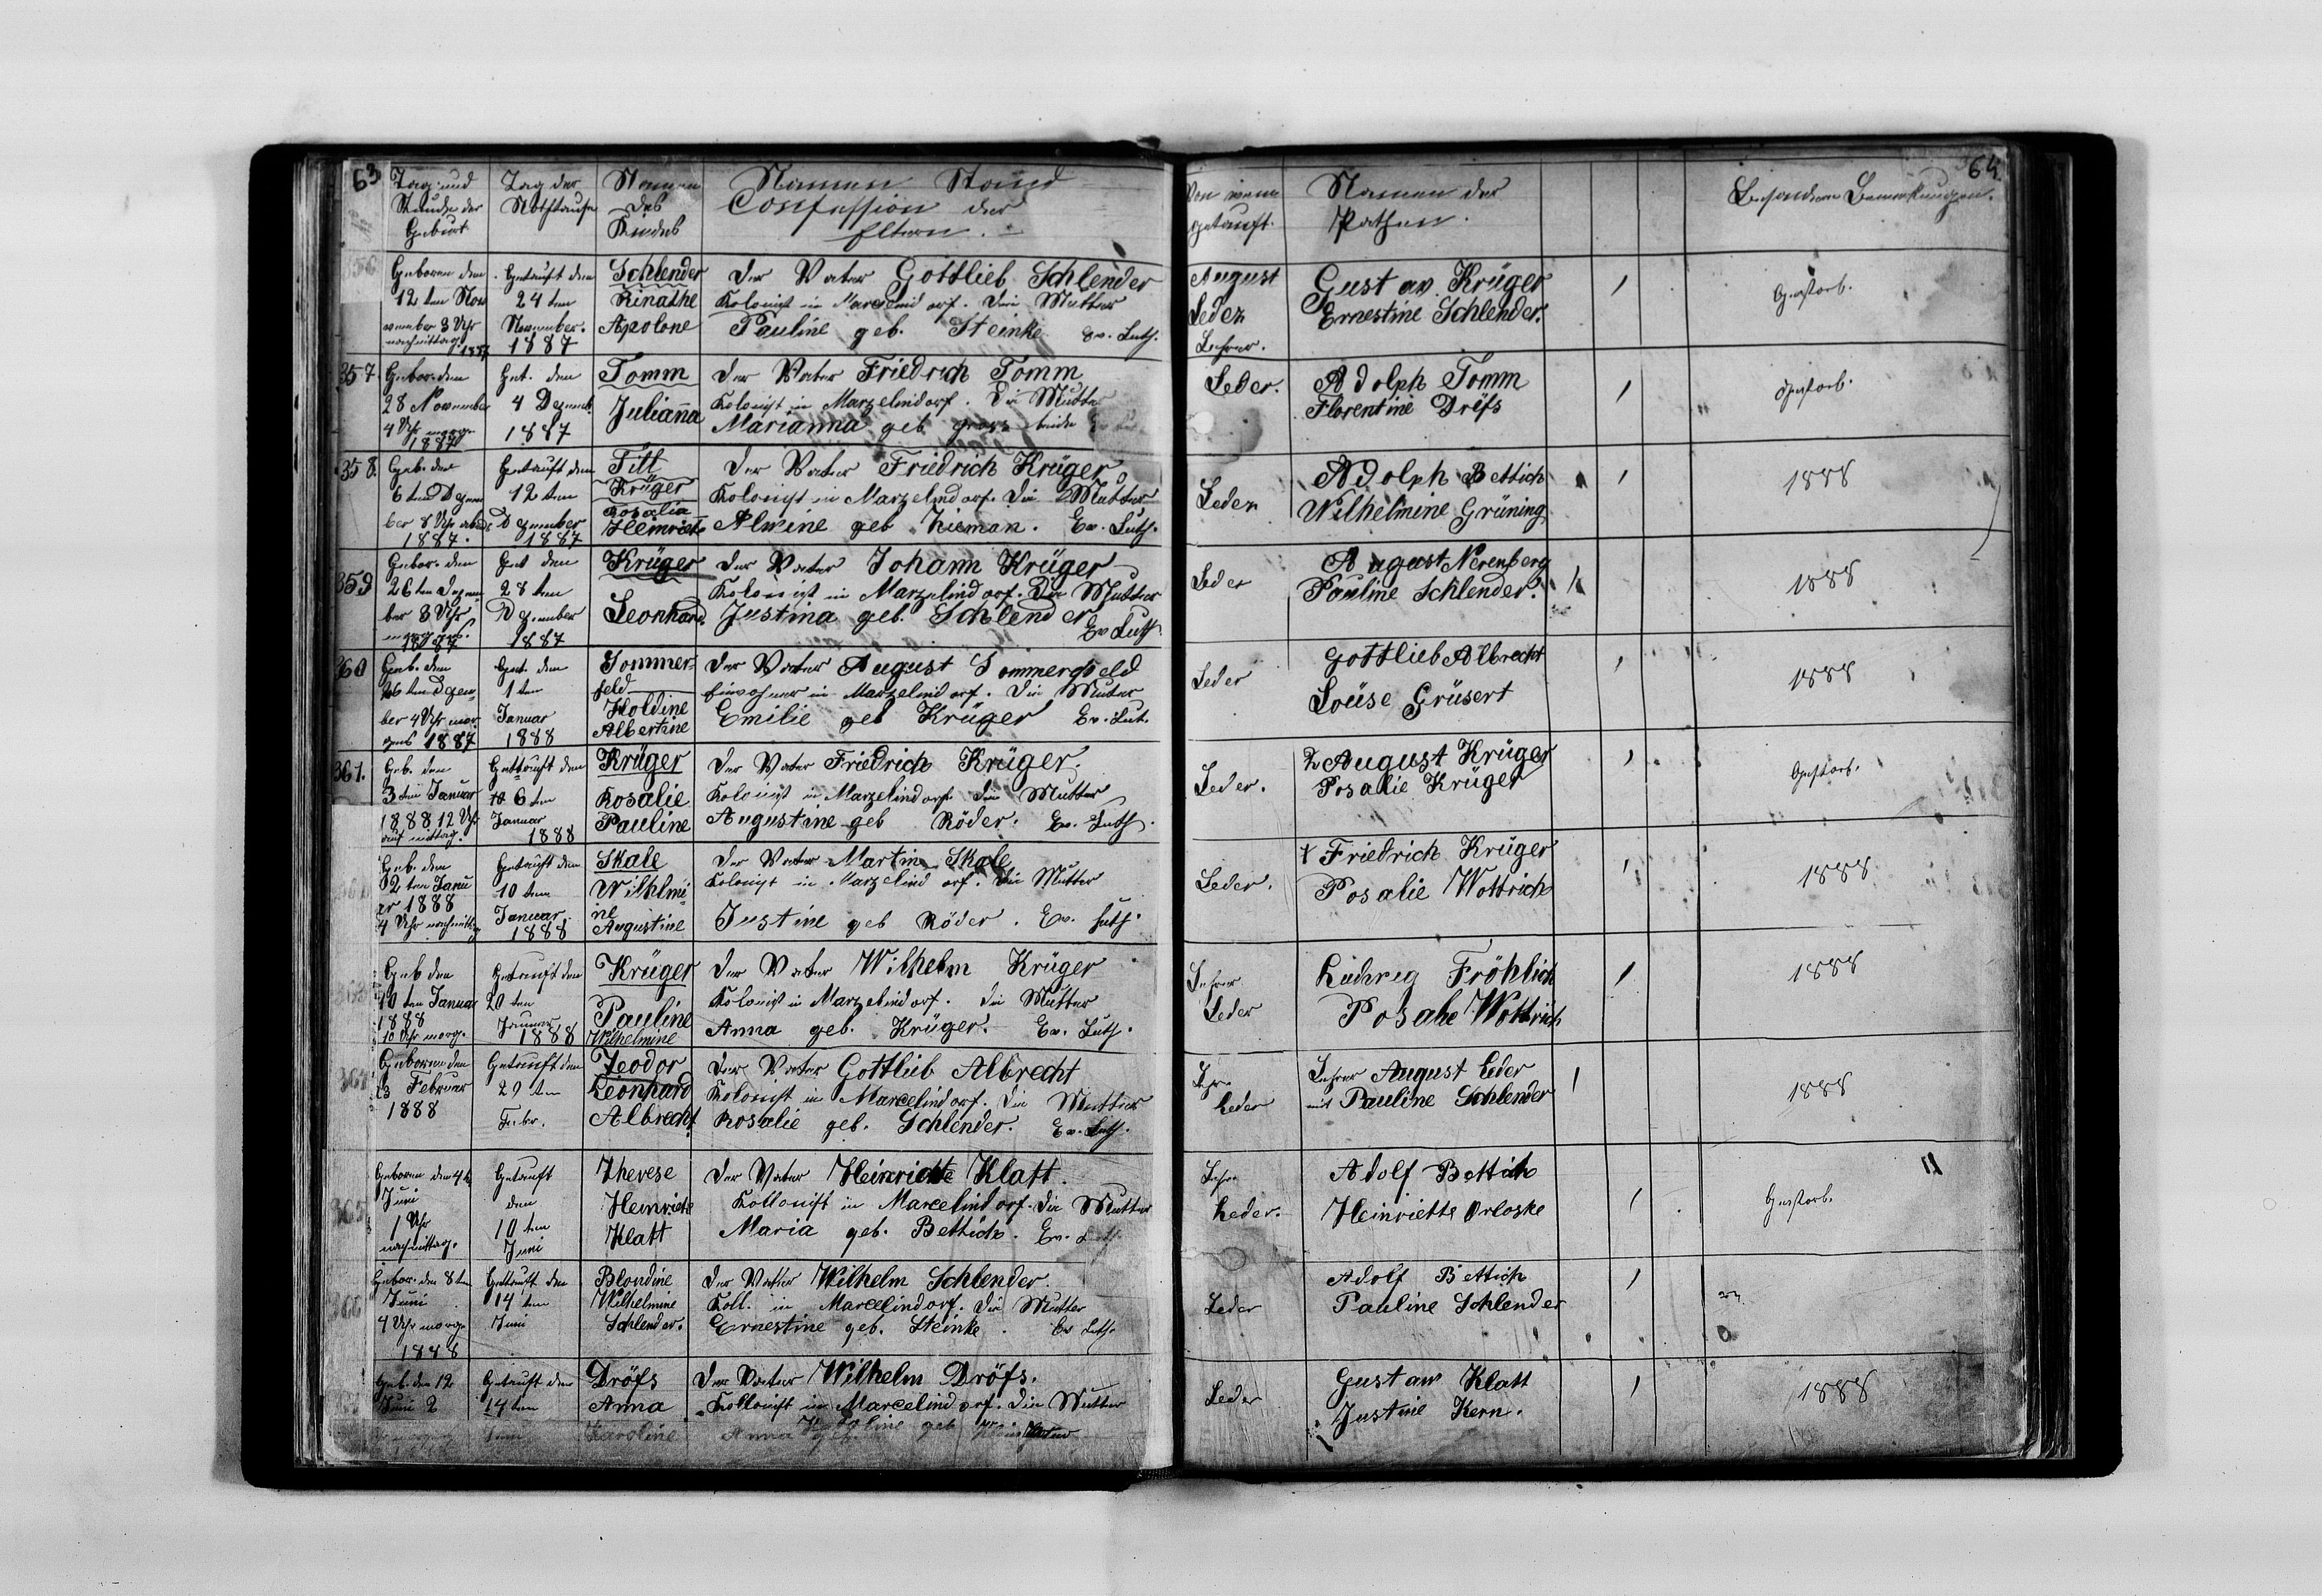 63
Tag und
Stunde der
Geburt
Tag der
Nothtaufe
Namen
des
Kindes
Namen Stand
Confession der
Eltern.
356
Geboren den
12 ten Nov
vember 3 Uhr
nachmittag. 1887
Getauft den
24 ten
November.
1887
Schlender
Rinathe
Apolone
Der Vater Gottlieb Schlender
Kolonist in Marcelindorf. Die Mutter
Pauline geb. Steinke Ev. Luth.
357.
Gebor. den
28 November
4 Uhr morge
1887
Get. den
4 Dezemb.
1887
Tomm
Julianna
Der Vater Friedrich Tomm
Kolonist in Marzelindorf. Die Mutter
Marianna geb gross beide Ev
358.
Geb. den
6 ten Dezem
ber 8 Uhr abends
1887.
Getauft den
12 ten
Dezember
1887
Titt
Krüger
Rosalia
Heinriete
Der Vater Friedrich Krüger
Kolonist in Marzelindorf. Die Mutter
Alwine geb Zieman. Ev. Luth.
359
Gebor. den
26 ten Dezem
ber 8 Uhr
morgens.
1887
Get den
28 ten
Dezember
1887
Krüger
Leonhard.
Der Vater Johann Krüger
Kolonist in Marzelindorf. Die Mutter
Justina geb. Schlender
Ev Luth.
360
Geb. den
26 ten Dezem
ber 4 Uhr mor
gens 1887
Get. den
1 ten
Januar
1888
Sommer
feld
Holdine
Albertine
Der Vater August Sommergfeld
Einwohner in Marzelindorf. Die Mutter
Emilie geb Krüger Ev. Lut.
361.
Geb. den
3 ten Januar
1888 12 Uhr
auf mittag.
Gettauft den
6 ten
Januar
1888
Krüger
Rosalie
Pauline
Der Vater Friedrich Krüger.
Kolonist in Marzelindorf. Die Mutter
Augustine geb Röder. Ev. Luth.
Geb. den
2 ten Janu
ar 1888
4 Uhr nachmittag
Getauft den
10 ten
Januar.
1888
Skale
Wilhlmi
ne
Augustine
Der Vater Martin Skale
Kolonist in Marzelindorf. Die Mutter
Justine geb Röder. Ev. Luth.
Geb den
10 ten Januar
1888
10 Uhr morg.
Getauft den
20 ten
Januar
1888
Krüger
Pauline
Wilhelmine
Der Vater Wilhelm Krüger
Kolonist in Marzelindorf. Die Mutter
Anna geb. Krüger. Ev. Luth.
364
Geboren den
13 Februar
1888
Getauft den
29 ten
Febr.
Teodor
Leonhard
Albrecht.
Der Vater Gottlieb Albrecht
Kolonist in Marcelindorf. Die Mutter
Rosalie geb. Schlender. Ev. Luth.
365
Geboren den 4 t
Juni
1 Uhr
nachmittag.
Getauft
den
10 ten
Juni
Therese
Heinriete
Klatt
Der Vater Heinriette Klatt.
Kollonist in Marcelindorf. Die Mutter
Maria geb. Bettich. Ev. Luth.
366
Gebor. den 8 ten
Juni
4 Uhr morg.
1888
Gettauft den
14 ten
Juni
Blondine
Wilhelmine
Schlender.
Der Vatter Wilhelm Schlender.
Koll. in Marcelindorf. Die Mutter
Ernestine geb. Steinke. Ev Luth.
Geb. den 12
Juni 2
Getauft den
14 ten
Juni
Dröfs
Anna
Karoline
Der Vater Wilhelm Dröfs.
Kollonist in Marcelindorf. Die Mutter
Anna Karoline geb
64.
Von wem
getauft.
Namen der
Pathen.
Besondere Bemerkungen.
August
Leder
Lehrer.
Gustav Krüger
Ernestine Schlender.
Gestorb.
Leder.
Adolph Tomm
Florentine Drefs
Gestorb.
Leder
Adolph Bettich
Wilhelmine Grüning
1888
Leder
August Nerenberg
Pauline Schlender.
1888
Leder
Gottlieb Albrecht
Louise Grüsert
1888
Leder.
August Krüger
Rosalie Krüger
Gestorb.
Leder.
Friedrich Krüger
Rosalie Wottrich
1888
Lehrer
Leder
Ludwig Fröhlich
Rosalie Wottrich
1888
Lehr.
Leder
Lehrer August Leder
mit Pauline Schlender
1888
Lehr.
Leder.
Adolf Bettich
Heinriette Orloske
Gestorb.
Leder
Adolf Bettich
Pauline Schlender
Leder
Gustaw Klatt
Justine Kern.
1888